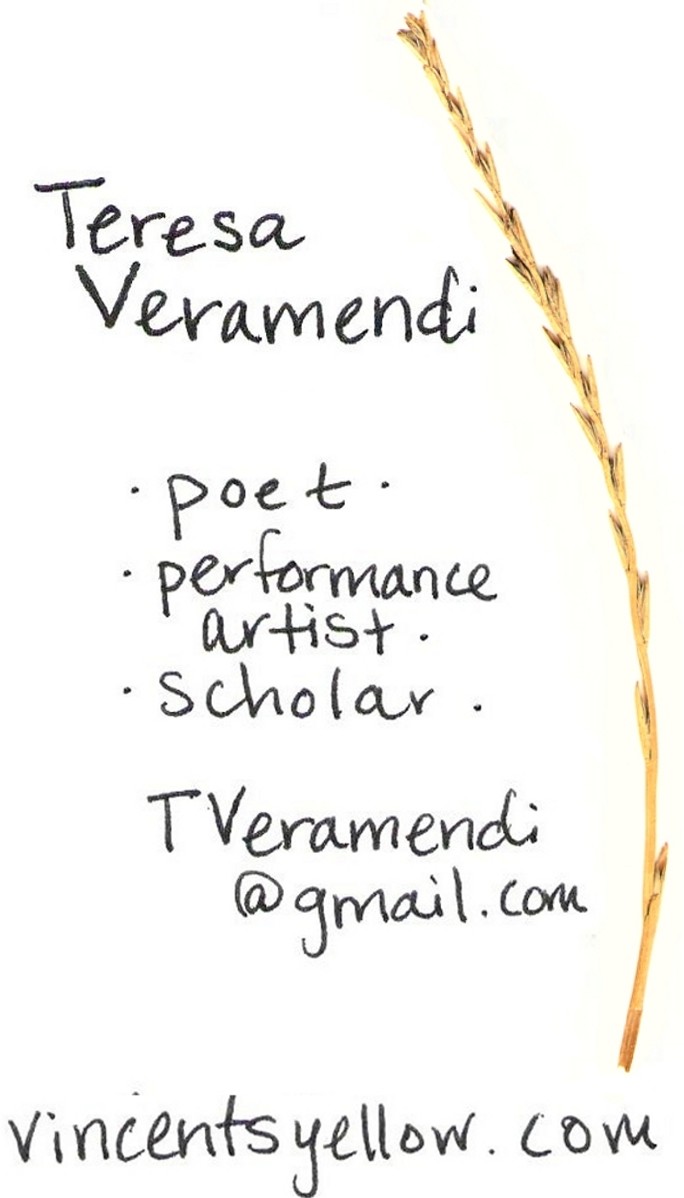 Teresa
Veramendi
· poet ·
· performance
artist ·
· scholar ·
TVeramendi
@gmail.com
vincentsyellow.com